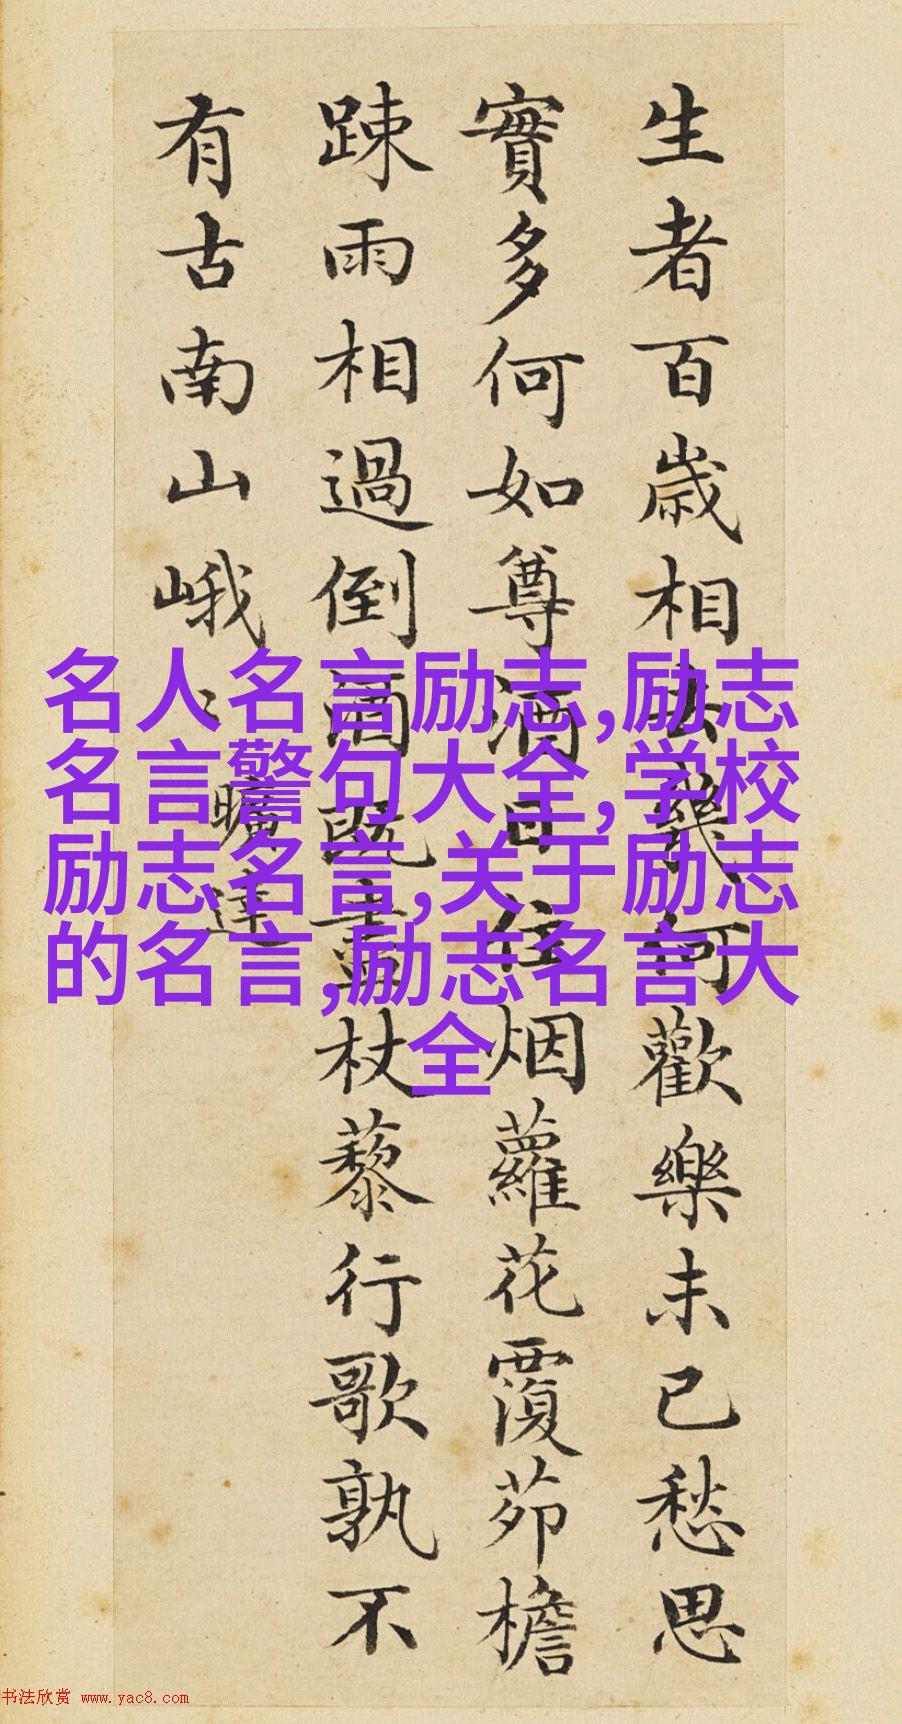 生者百歳相去幾何歡樂未已愁思
實多何如尊酒日往烟蘿花覆茆檐
踈雨相過倒酒既盡杖藜行歌孰不
有古南山峨〻
曠達
名人名言励志,励志
名言警句大全,学校
励志名言,关于励志
的名言,励志名言大
全
书法欣赏 www.yac8.com